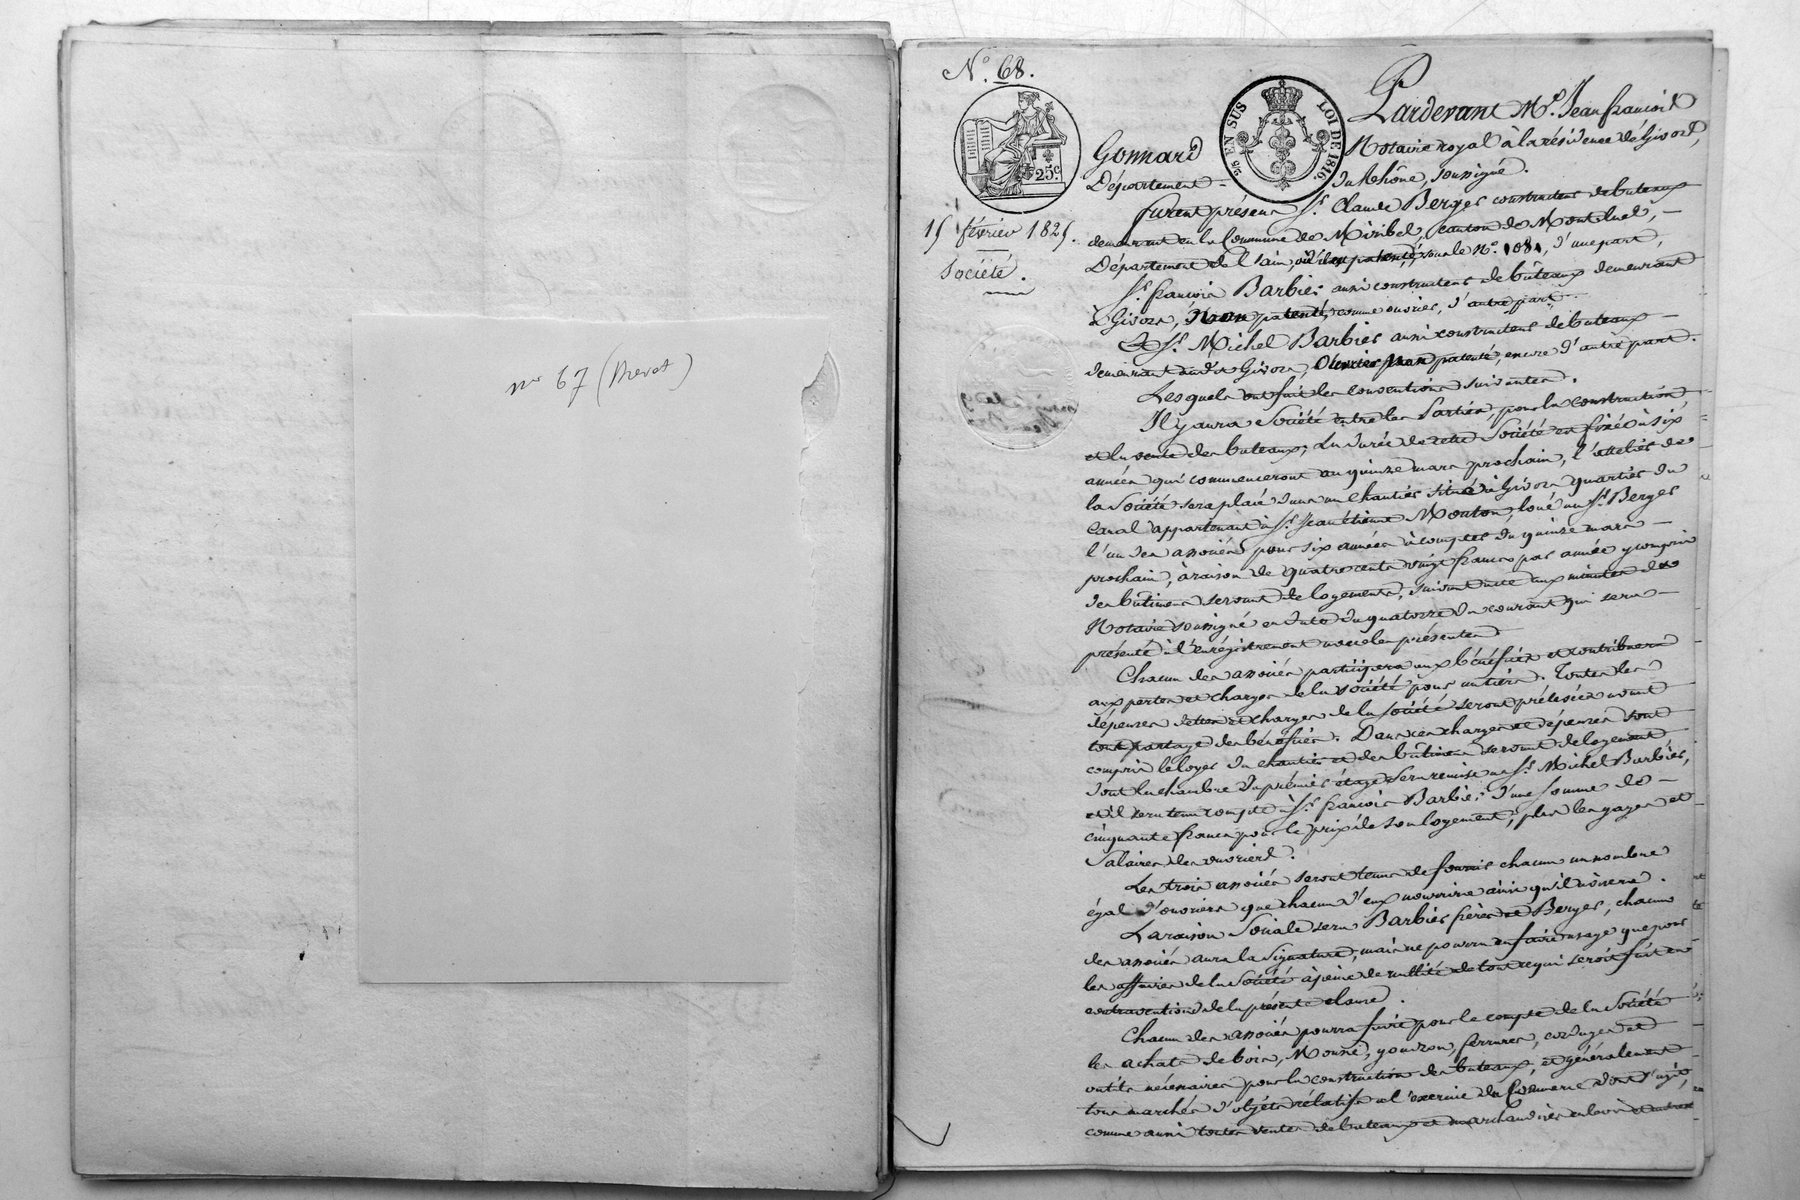 nº 67 (Brevet)
Nº. 68.
25 EN SUS
LOI DE 1816.
25c
15 février 1825.
Société.
Pardevant Me. Jean françois
Gonnard Notaire royal à la résidence de Givors,
Département du Rhône, soussigné.
furent présens Sr. Claude Berger constructeur de bateaux
demeurant en la Commune de Miribel, canton de Montluel,
Département de l'ain, patenté, sous le nº. 108, d'une part,
Sr. françois Barbier aussi constructeur de bâteaux demeurant
à Givors, non patenté, comme ouvrier, d'autre part.
Et Sr. Michel Barbier aussi constructeur de bateaux
demeurant audit Givors, Ouvrier non patenté, encore d'autre part.
Lesquels ont fait les conventions suivantes.
Il y aura Société entre les Parties, pour la construction
et la vente des bateaux; La durée de cette Société est fixée à six
années qui commenceront au quinze mars prochain, l'attelier de
la Société sera placé dans un Chantier situé à Givors quartier du
Canal appartenant à Sr. Jean étienne Mouton, loué au Sr. Berger
l'un des associés pour six années à compter du quinze mars
prochain, à raison de quatre cents vingt francs par année y compris
des bâtimens servant de logements, suivant acte aux minutes du
Notaire soussigné en date du quatorze du courant qui sera
présenté à l'enrégistrement avec les présentes
Chacun des associés participera aux bénéfices et contribuera
aux pertes et charges de la société pour un tiers. Toutes les
dépenses dettes et charges de la société seront prélevées avant
tout partage des bénéfices. Dans ces charges et dépenses sont
compris le loyer du chantier et des bâtimens servant de logement
dont la chambre du prémier étage sera remise au Sr. Michel Barbier,
et il sera tenu compte à Sr. françois Barbier d'une somme de
cinquante francs pour le prix de son logement; plus les gages et
Salaires des ouvriers.
Les trois associés seront tenus de fournir chacun un nombre
égal d'ouvriers que chacun d'eux nourrira ainsi qu'il avisera.
La raison Sociale sera Barbier frères et Berger, chacun
des associés aura la signature, mais ne pourra en faire usage que pour
les affaires de la Société à peine de nullité de tout ce qui seroit fait en
contravention de la présente clause.
Chacun des associés pourra faire pour le compte de la Société
les achats de bois, Mousse, goudron, ferrures, cordages et
outils nécessaires pour la construction des bateaux, et généralement
tous marchés d'objets rélatifs à l'exercice du Commerce dont s'agit,
comme aussi toutes ventes de bateaux et marchandises en bois et autres